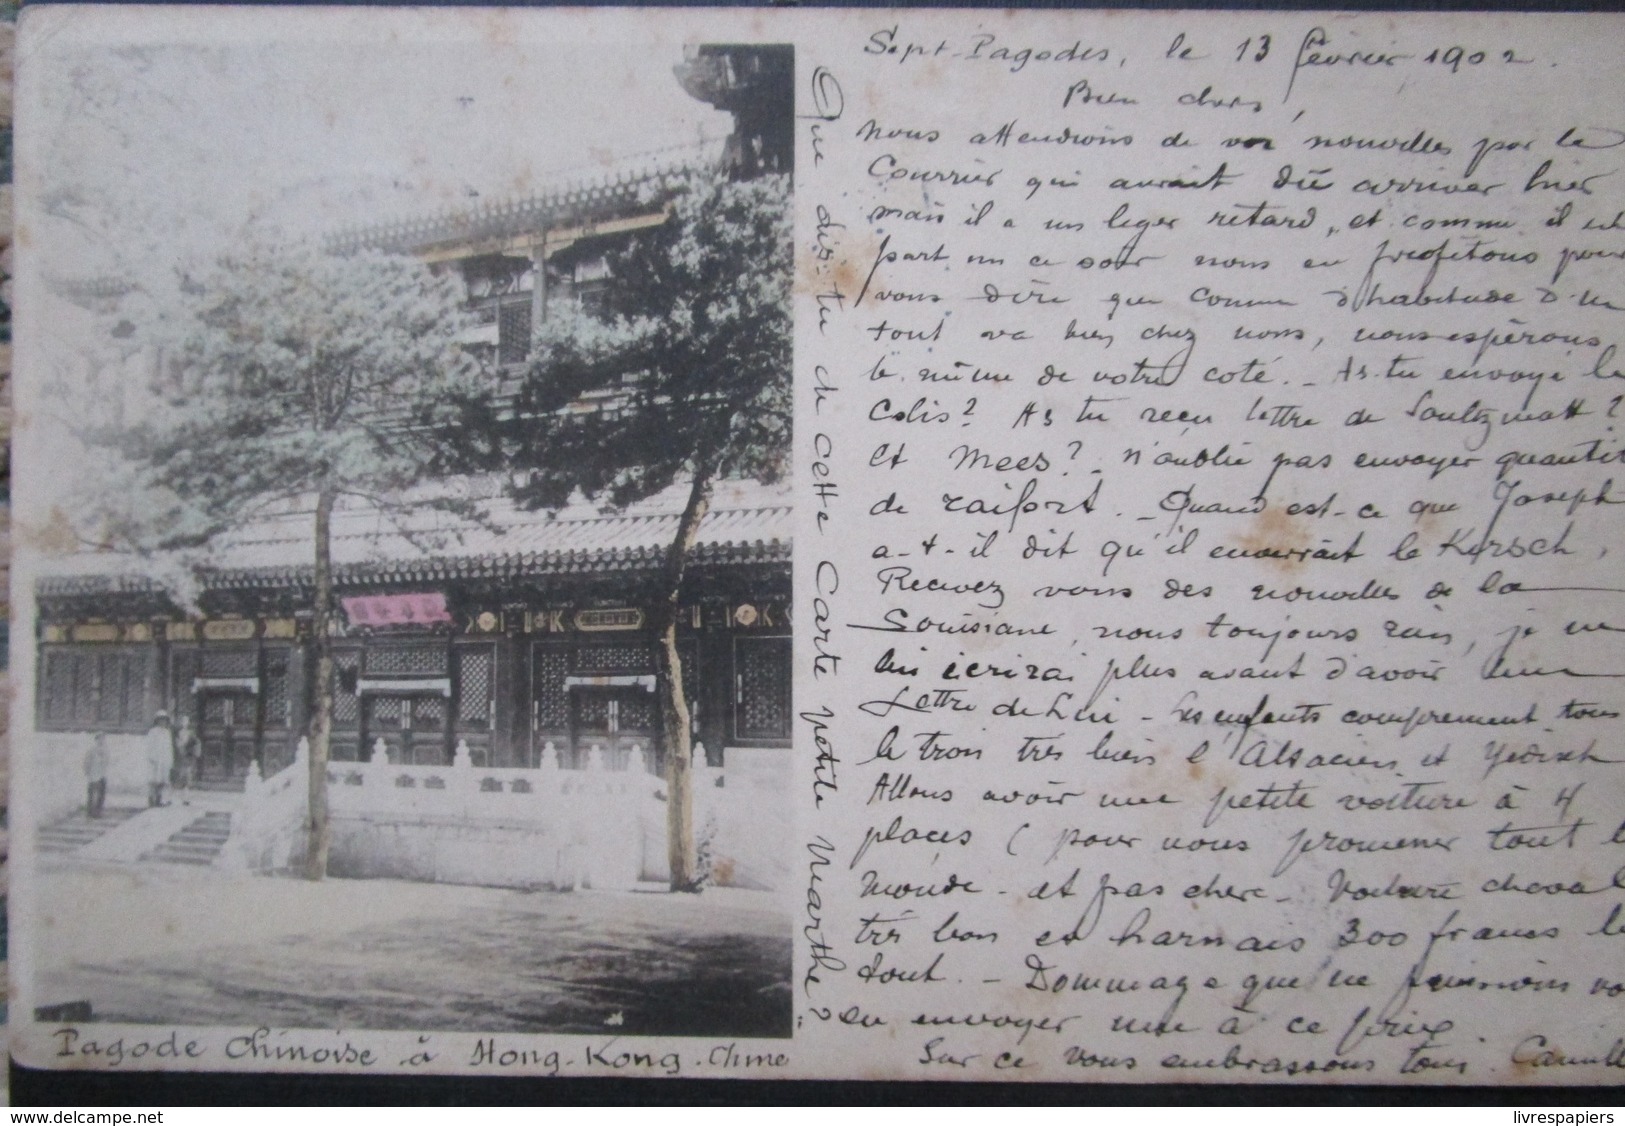 Sept-Pagodes, le 13 février 1902.
Bien chers,
Nous attendions de vos nouvelles par le
Courrier qui aurait dû arriver hier
mais il a un léger retard, et comme il est
part en ce soir nous en profitons pour
vous dire que comme d'habitude
tout va bien chez nous, nous espérons
le même de votre coté. - As-tu envoyé le
Colis? As tu reçu lettre de Soultzmatt?
Et Mees? - N'oublie pas envoyer quantit
de raifort. - Quand est-ce que Joseph
a-t-il dit qu'il enverrait le Kirsch,
Recevez vous des nouvelles de la
Louisiane, nous toujours rien, je ne
lui écrirai plus avant d'avoir une
Lettre de Lui - Les enfants comprennent tous
le trois très bien l'Alsacien et Yedisch
Allons avoir une petite voiture à 4
places (pour nous promener tout le
monde - et pas cher - Voiture cheval
très bon et harnais 300 francs le
tout. - Dommage que ne puissions vo
en envoyer une à ce prix
Sur ce vous embrassons tous. Camille
Que dis-tu de cette Carte petite Marthe?
Pagode Chinoise à Hong-Kong. Chine
delcampe.net
livrespapiers